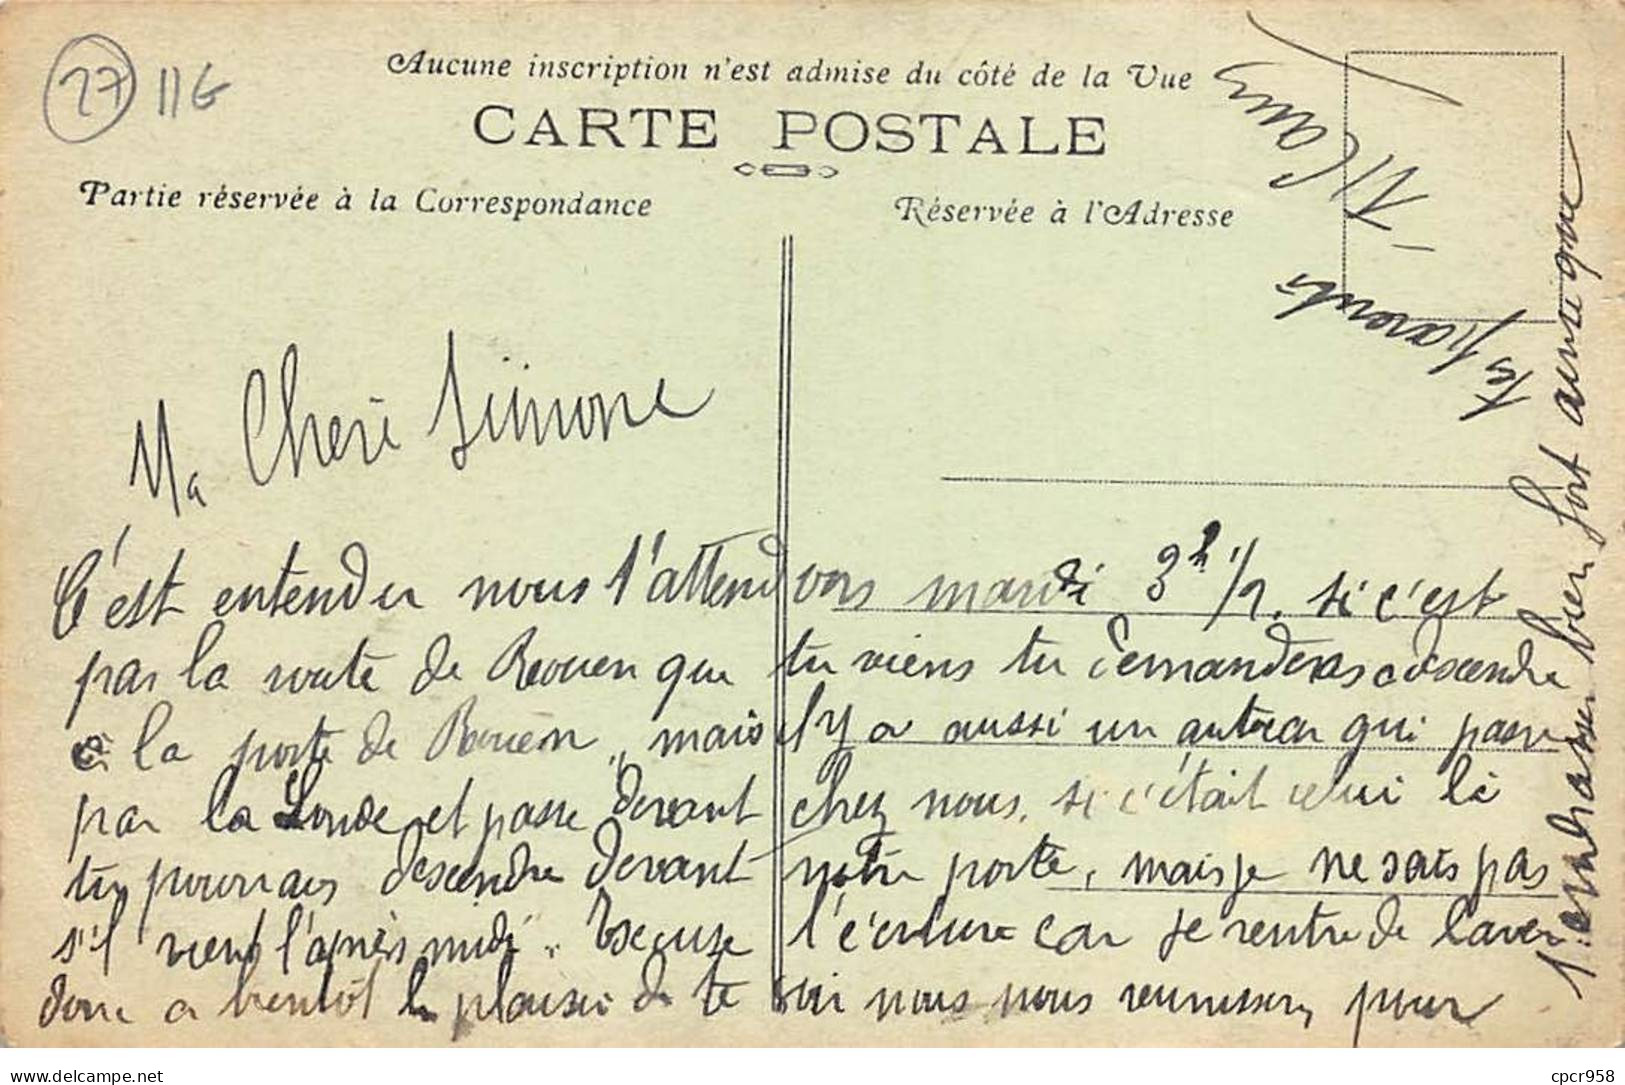 27 116
Aucune inscription n'est admise du côté de la Vue
CARTE POSTALE
Partie réservée à la Correspondance
Réservée à l'Adresse
Ma Cheri Simone
C'est entendu nous t'attendrons mardi 3h 1/2. si c'est
par la route de Rouen que tu viens tu demanderas a descendre
à la porte de Rouen, mais il y a aussi un autocar qui passe
par la Londe et passe devant chez nous. si c'était celui là
tu pourrais descendre devant notre porte, mais je ne sais pas
s'il vient l'après midi. Escuse l'écriture car je rentre de laver
donc a bientôt le plaisir de te voir nous nous reunissons pour
t'embrasser bien fort ainsi que
tes parents
cpcr958